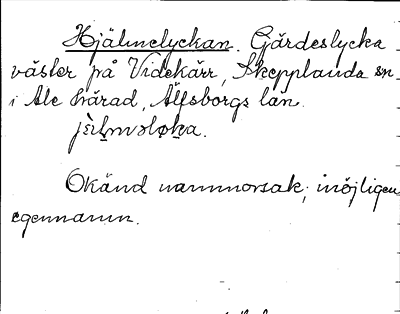 Hjälmelyckan. Gärdeslycka
väster på Videkärr, Skepplanda sn
i Ale härad, Älfsborgs län.
Okänd namnorsak, möjligen
egennamn.